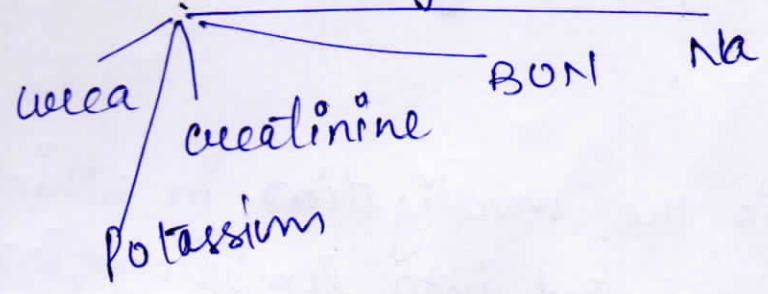 urea
creatinine
BUN
Na
Potassium